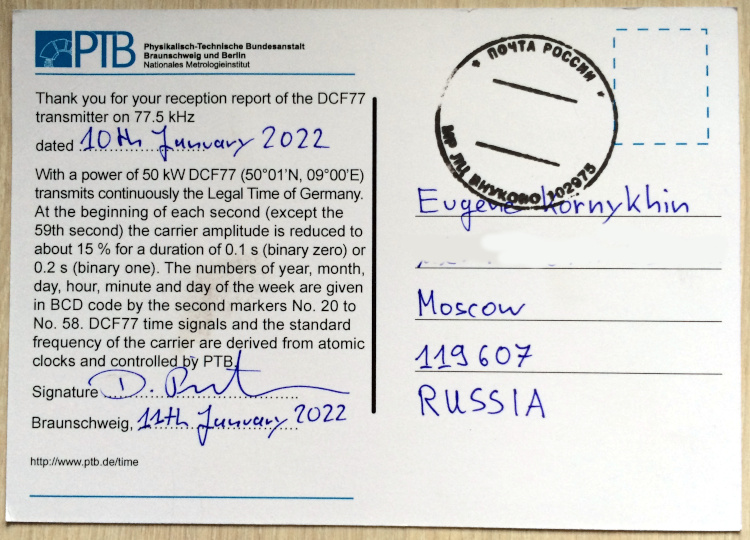 PTB
Physikalisch-Technische Bundesanstalt
Braunschweig und Berlin
Nationales Metrologieinstitut
Thank you for your reception report of the DCF77
transmitter on 77.5 kHz
dated 10th January 2022
With a power of 50 kW DCF77 (50°01'N, 09°00'E)
transmits continuously the Legal Time of Germany.
At the beginning of each second (except the
59th second) the carrier amplitude is reduced to
about 15 % for a duration of 0.1 s (binary zero) or
0.2 s (binary one). The numbers of year, month,
day, hour, minute and day of the week are given
in BCD code by the second markers No. 20 to
No. 58. DCF77 time signals and the standard
frequency of the carrier are derived from atomic
clocks and controlled by PTB.
Signature D.
Braunschweig, 11th January 2022
http://www.ptb.de/time
* ПОЧТА РОССИИ *
МР ЛЦ ВНУКОВО 102975
Eugene Kornykhin
Moscow
119607
RUSSIA